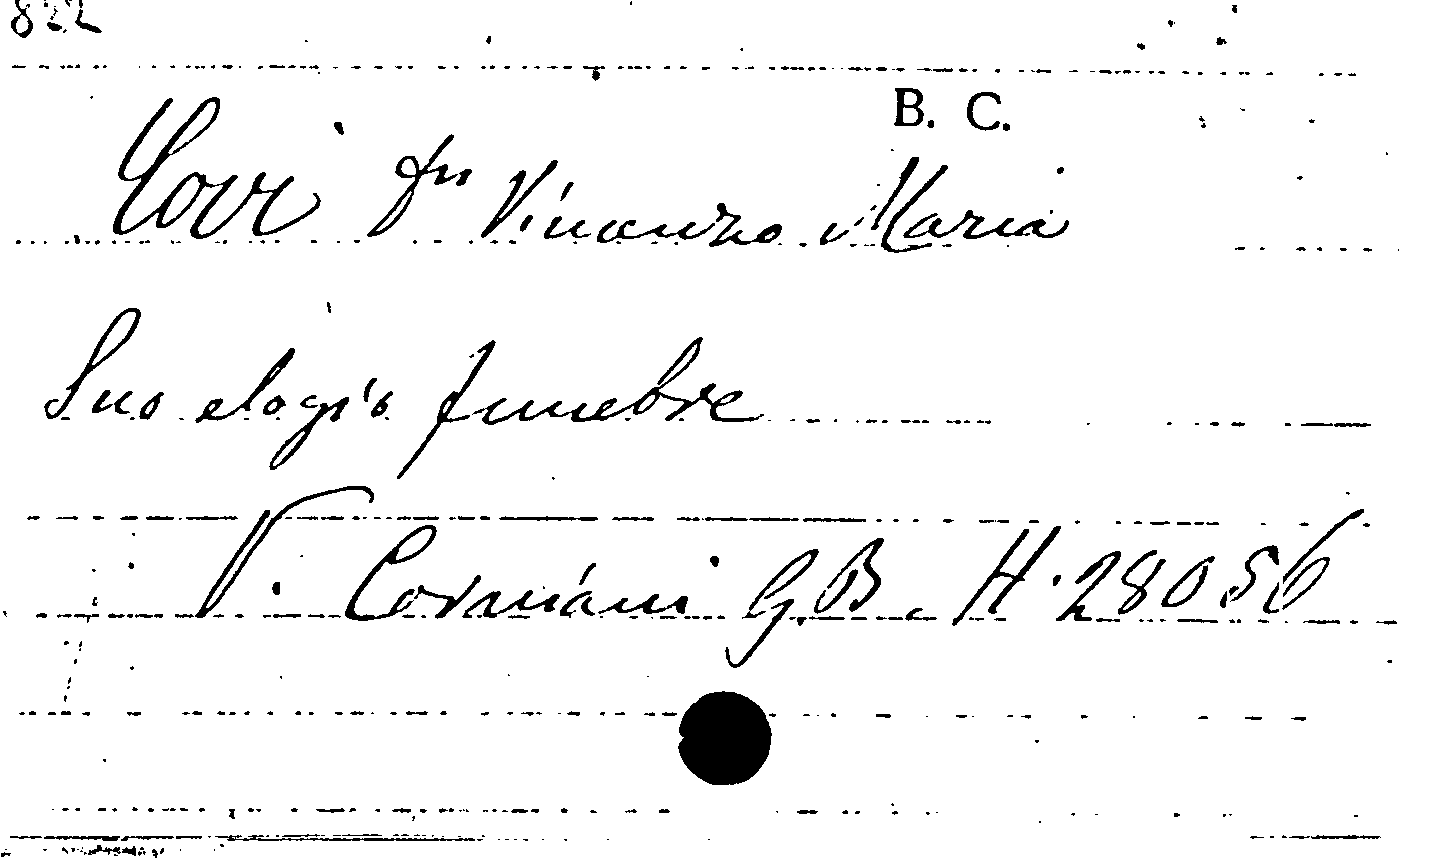 822
B. C.
Covi Vinanzo Maria
Suo elogio funebre
V. Cormáni G. B. H. 28056